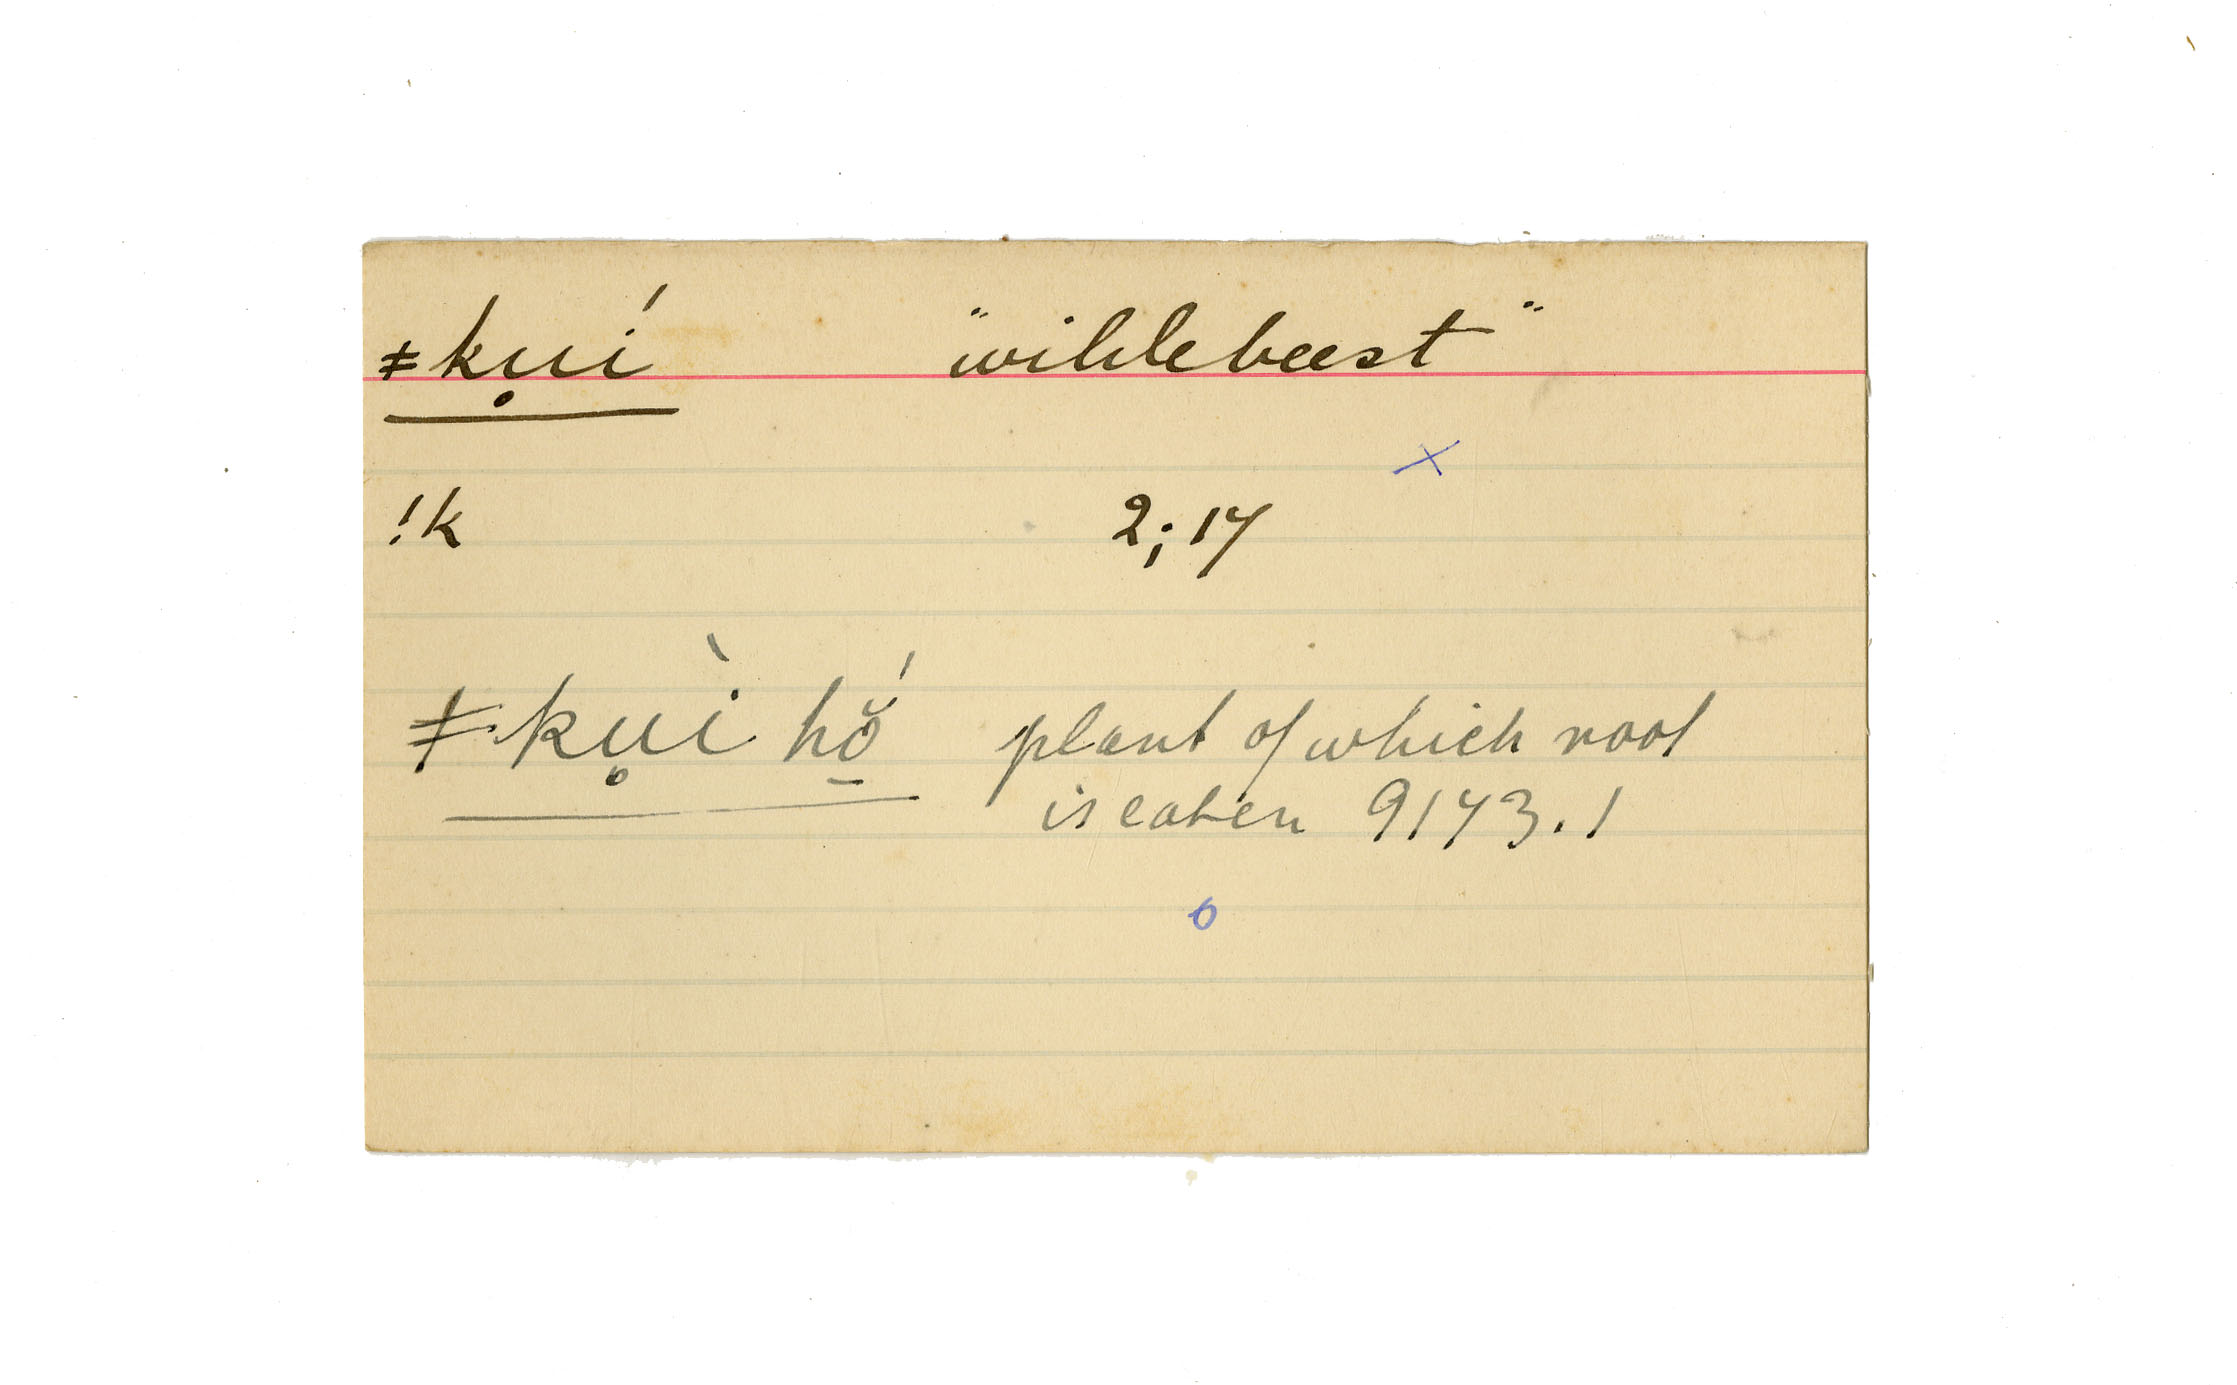 ǂkụí "wildebeest"
x
!k 2; 17
ǂkụì hŏ̱́ plant of which root
is eaten 9173.1
o